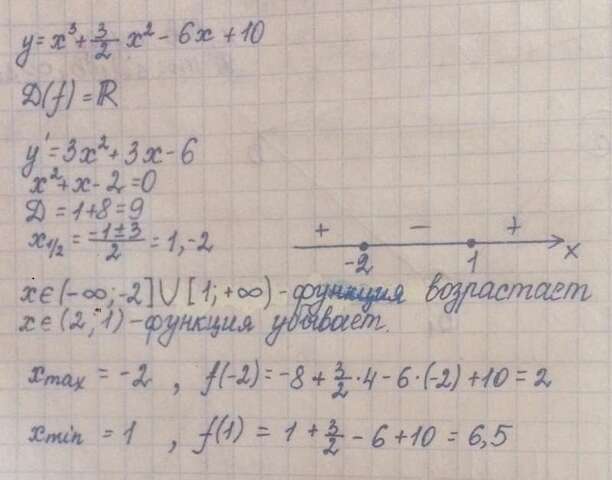 y = x³ + 3/2 x² - 6x + 10
D(f) = ℝ
y' = 3x² + 3x - 6
x² + x - 2 = 0
D = 1 + 8 = 9
x₁/₂ = (-1 ± 3)/2 = 1, -2
+ - +
-2 1 x
x ∈ (-∞; -2] ∪ [1; +∞) - функция возрастает
x ∈ (2; 1) - функция убывает.
xmax = -2 , f(-2) = -8 + 3/2 · 4 - 6 · (-2) + 10 = 2
xmin = 1 , f(1) = 1 + 3/2 - 6 + 10 = 6,5